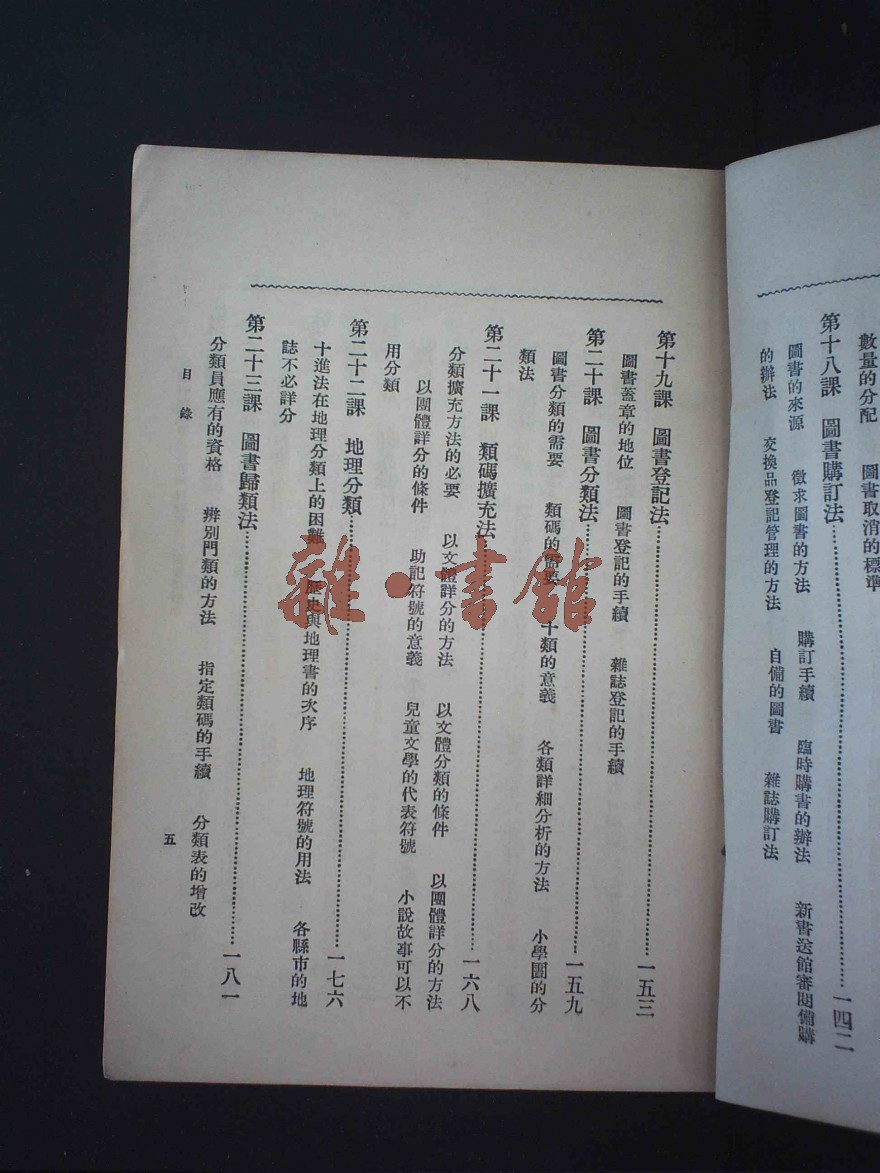 數量的分配　圖書取消的標準
第十八課　圖書購訂法……一四二
圖書的來源　徵求圖書的方法　購訂手續　臨時購書的辦法　新書送館審閱備購
的辦法　交換品登記管理的方法　自備的圖書　雜誌購訂法
第十九課　圖書登記法……一五三
圖書蓋章的地位　圖書登記的手續　雜誌登記的手續
第二十課　圖書分類法……一五九
圖書分類的需要　類碼的需要　十類的意義　各類詳細分析的方法　小學圖的分
類法
第二十一課　類碼擴充法……一六八
分類擴充方法的必要　以文體詳分的方法　以文體分類的條件　以團體詳分的方法
以團體詳分的條件　助記符號的意義　兒童文學的代表符號　小說故事可以不
用分類
第二十二課　地理分類……一七六
十進法在地理分類上的困難　歷史與地理書的次序　地理符號的用法　各縣市的地
誌不必詳分
第二十三課　圖書歸類法……一八一
分類員應有的資格　辨別門類的方法　指定類碼的手續　分類表的增改
目錄
五
雜·書館